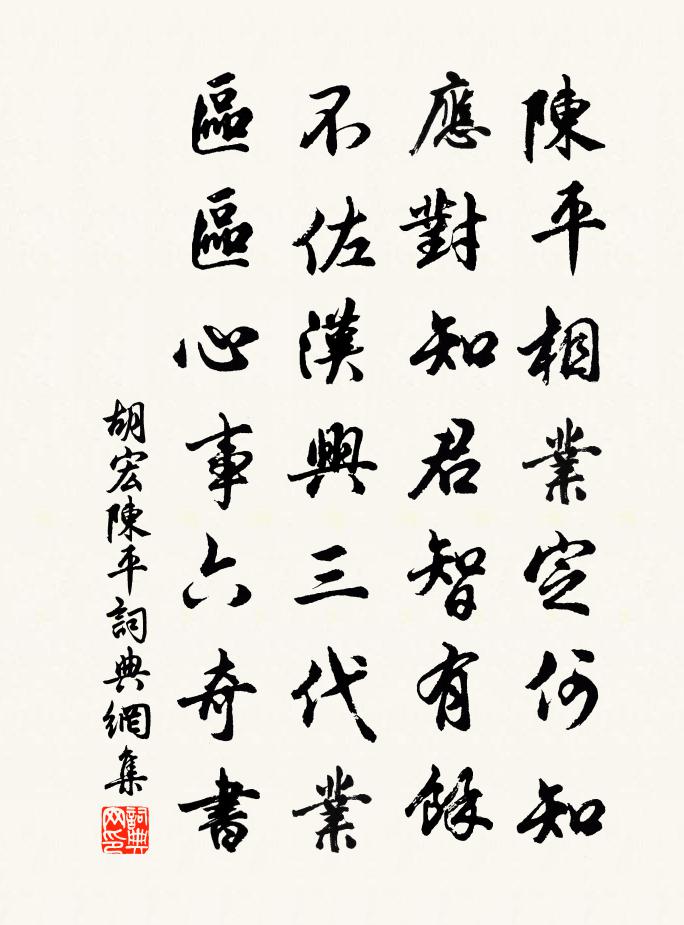 陳平相業定何知
應對知君智有餘
不佐漢興三代業
區區心事六奇書
胡宏陳平詞典網集
詞典網印